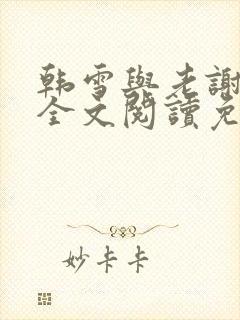 韩雪與老謝
全文閱讀免
妙卡卡